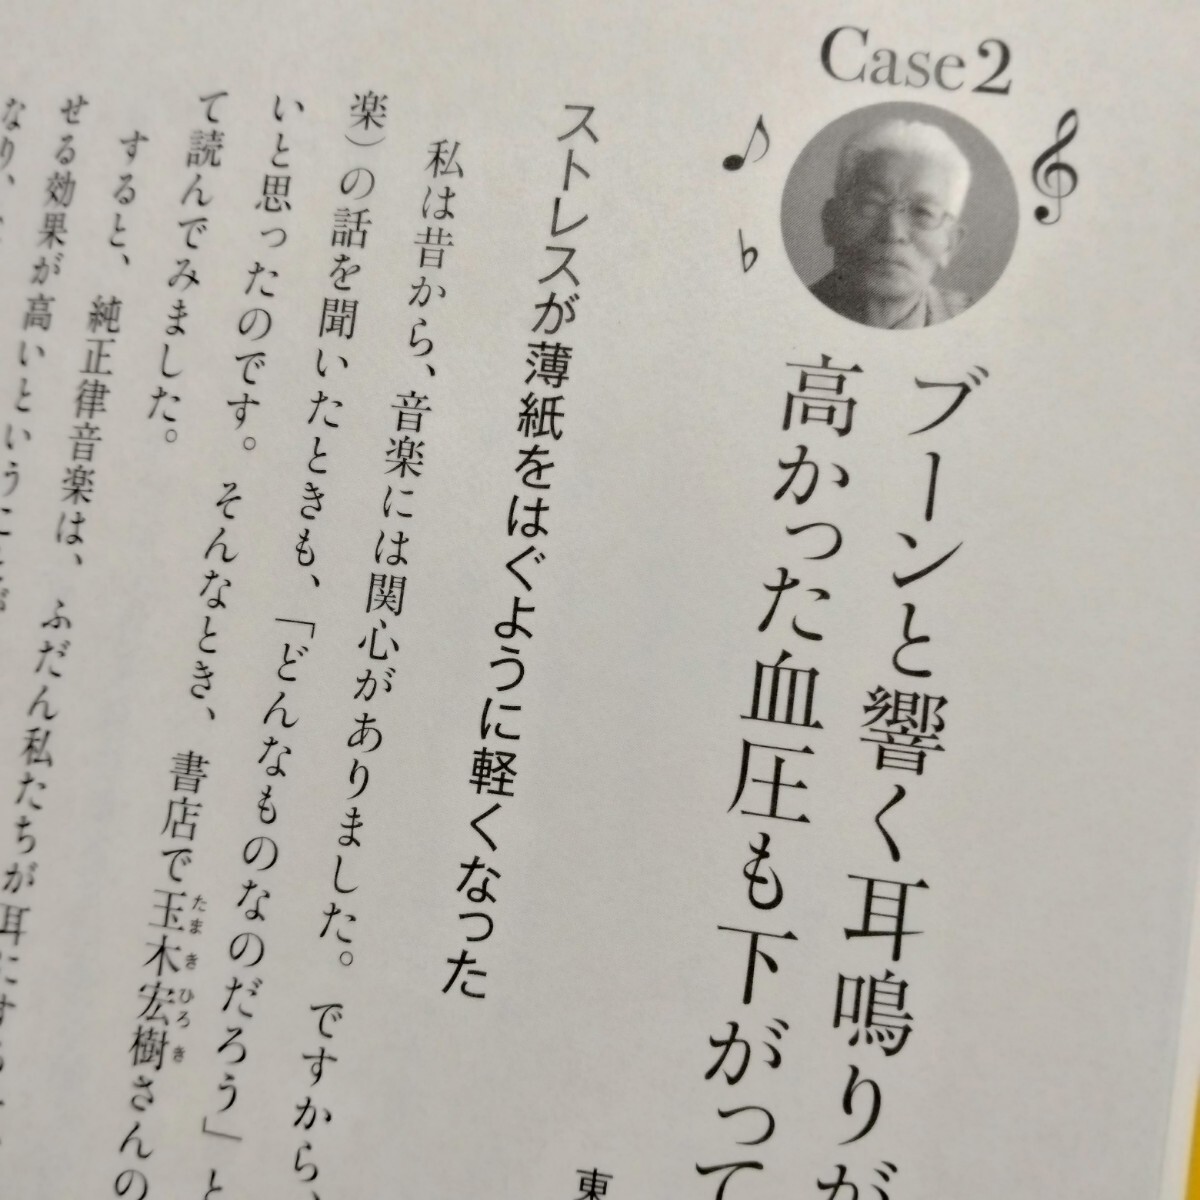 Case2
ブーンと響く耳鳴りが
高かった血圧も下がって
東
ストレスが薄紙をはぐように軽くなった
私は昔から、音楽には関心がありました。ですから、
楽）の話を聞いたときも、「どんなものなのだろう」と
いと思ったのです。そんなとき、書店で玉木宏樹さんの
たまきひろき
て読んでみました。
すると、純正律音楽は、ふだん私たちが耳にする
せる効果が高いということが
なり、